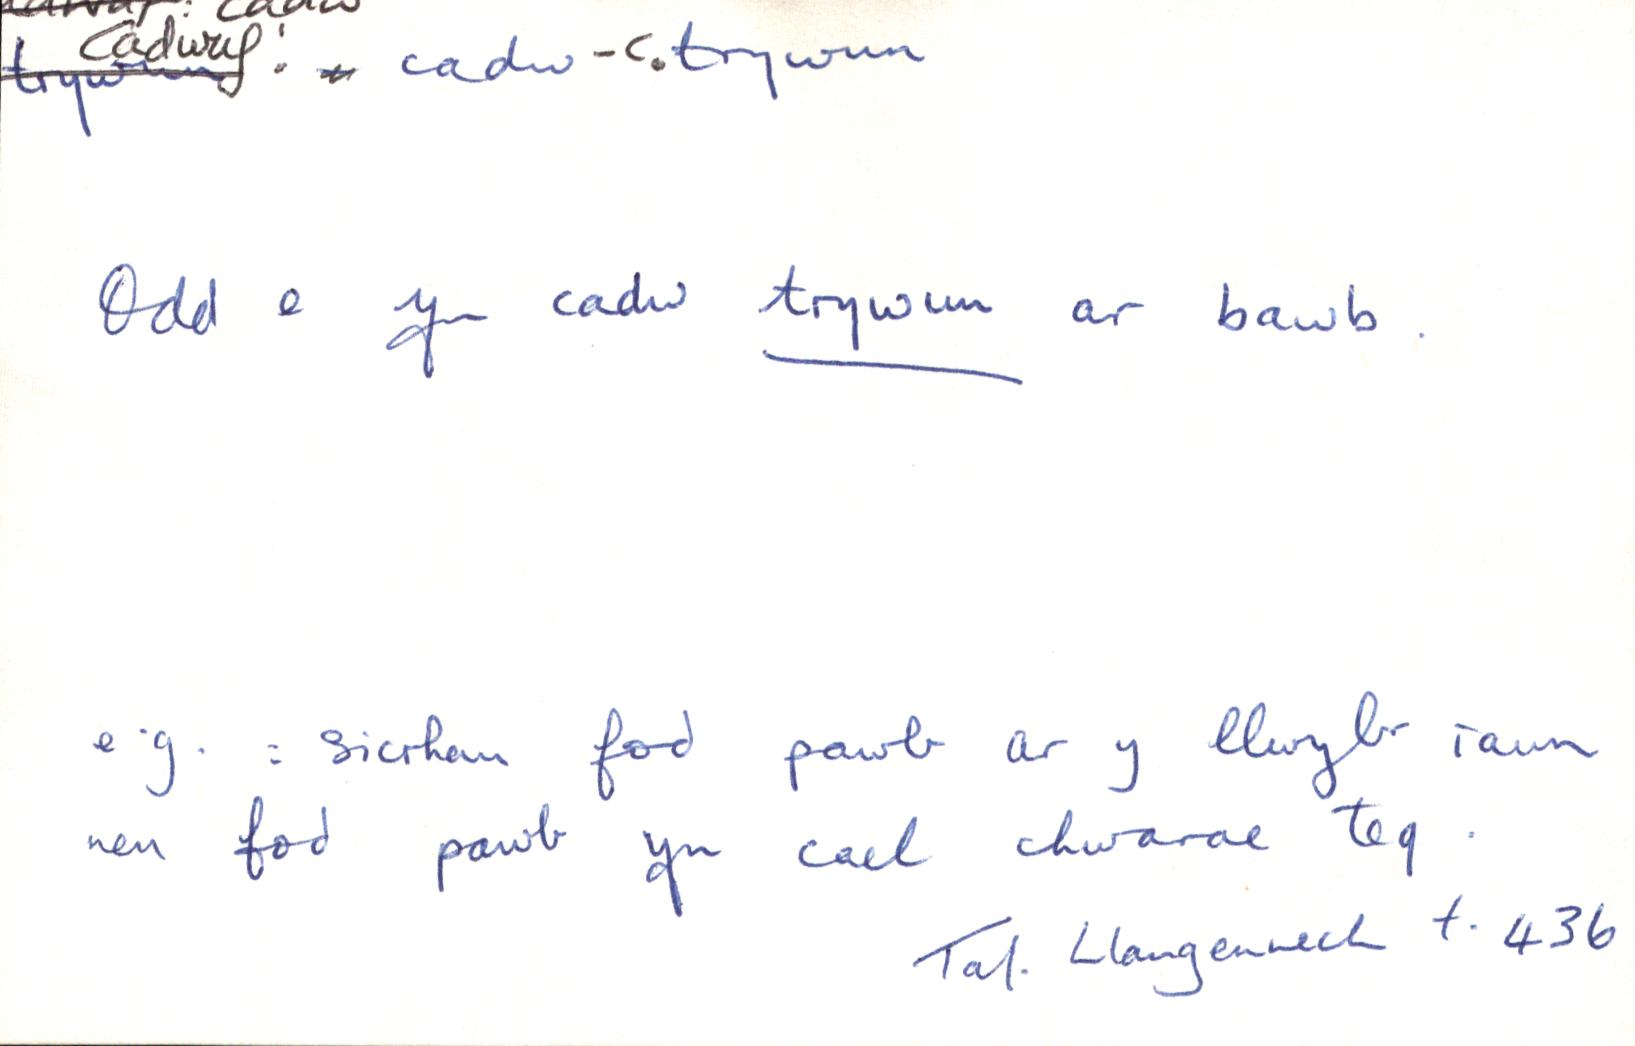 cadw
Cadwaf :
trywun : cadw - c. trywun
Odd e yn cadw trywun ar bawb .
e.g. : sicrhau fod pawb ar y llwybr iawn
neu fod pawb yn cael chwarae teg .
Taf. Llangennech t. 436